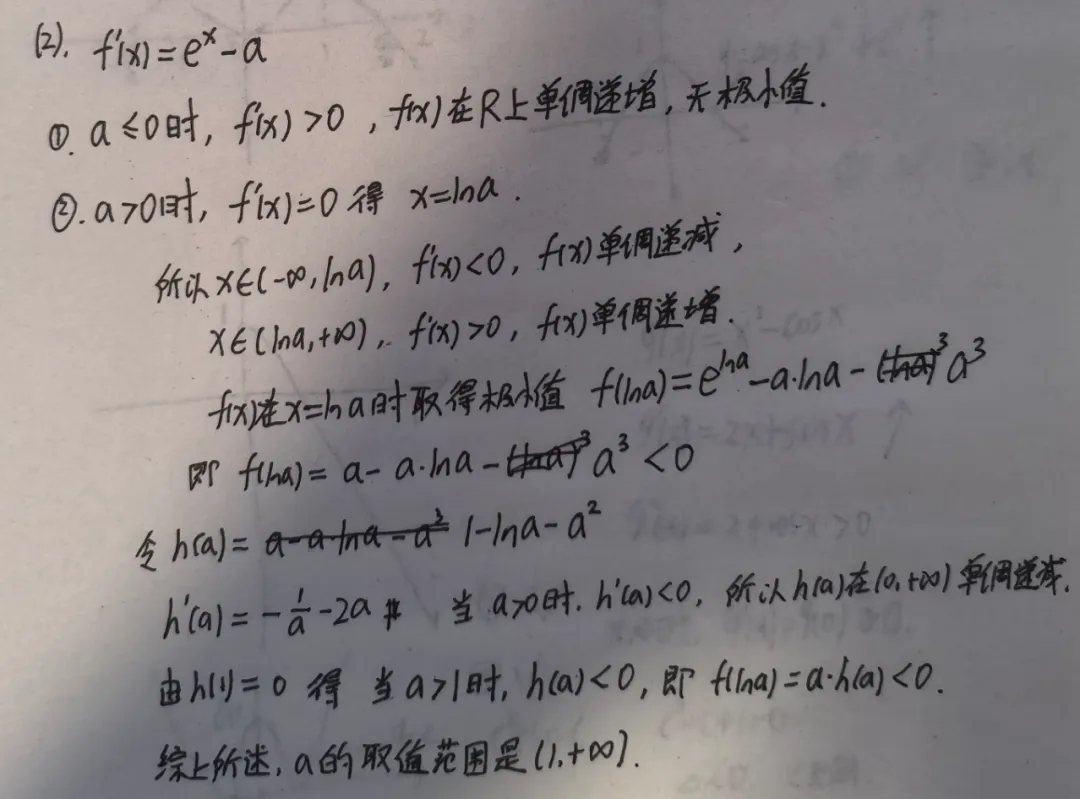 (2). f'(x)=e^x-a
①. a≤0时, f'(x)>0, f(x)在R上单调递增, 无极小值.
②. a>0时, f'(x)=0 得 x=lna.
所以x∈(-∞,lna), f'(x)<0, f(x)单调递减,
x∈(lna,+∞), f'(x)>0, f(x)单调递增.
f(x)在x=lna时取得极小值 f(lna)=e^{lna}-a·lna-a^3
即 f(lna)=a-a·lna-a^3<0
令 h(a)=1-lna-a^2
h'(a)=-\frac{1}{a}-2a 当a>0时, h'(a)<0, 所以h(a)在(0,+∞)单调递减.
由h(1)=0 得 当a>1时, h(a)<0, 即 f(lna)=a·h(a)<0.
综上所述, a的取值范围是(1,+∞).